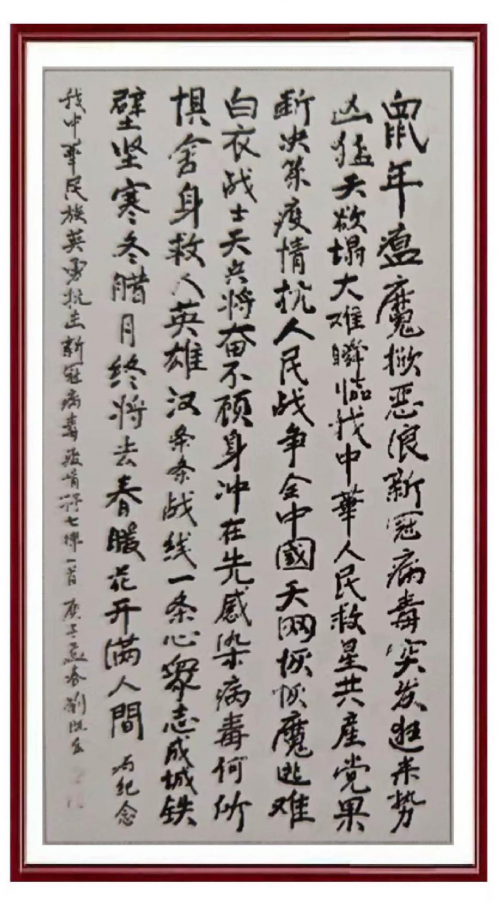 鼠年瘟魔掀恶浪新冠病毒突发逛来势
凶猛天欲塌大难瞬临我中華人民救星共産党果
断决策疫情抗人民战争全中國天网恢恢魔逃难
白衣战士天兵将奋不顾身冲在先感染病毒何所
惧舍身救人英雄汉条条战线一条心众志成城铁
壁坚寒冬腊月终将去春暖花开满人間
为纪念
我中華民族英勇抗击新冠病毒疫情得七律一首 庚子孟春劉